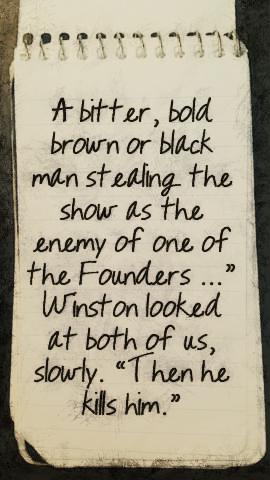 A bitter, bold
brown or black
man stealing the
show as the
enemy of one of
the Founders ...”
Winston looked
at both of us,
slowly. “Then he
kills him.”